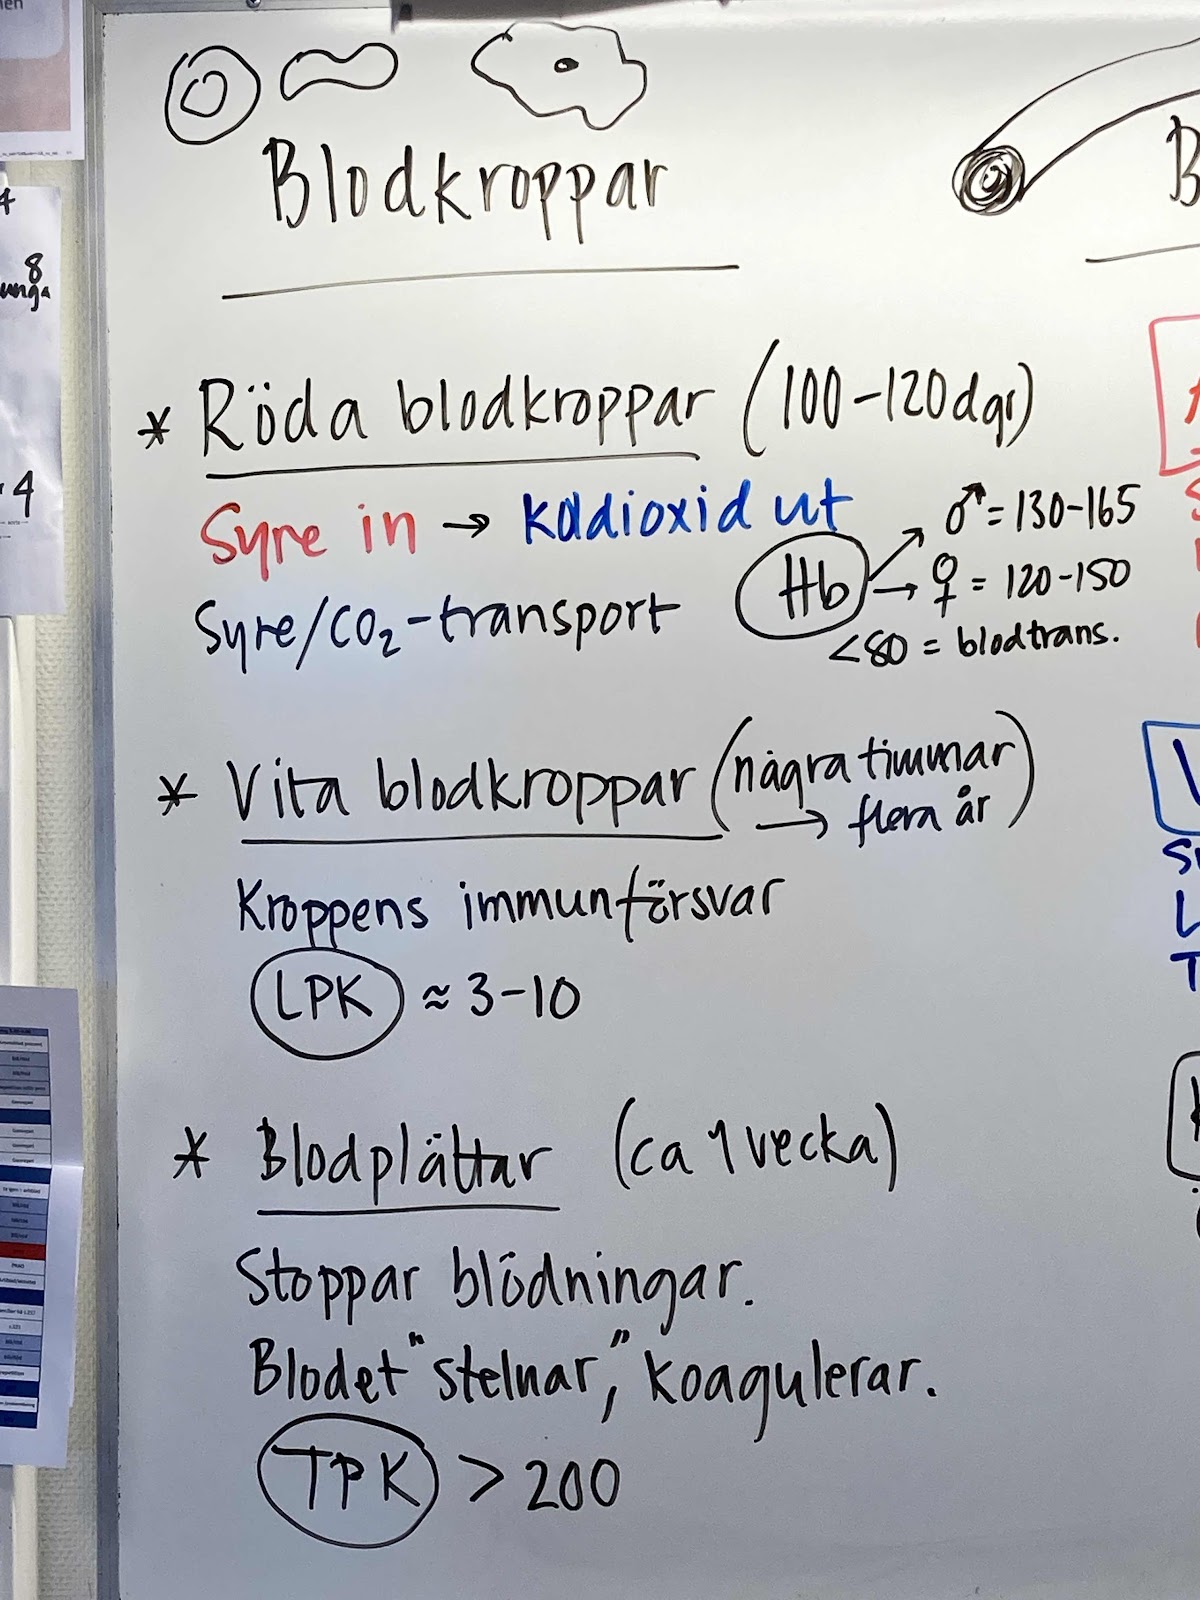 Blodkroppar
* Röda blodkroppar (100-120 dgr)
Syre in → Koldioxid ut
Syre/CO₂-transport
Hb → ♂ = 130-165
→ ♀ = 120-150
<80 = blodtrans.
* Vita blodkroppar (några timmar
→ flera år)
Kroppens immunförsvar
LPK ≈ 3-10
* Blodplättar (ca 1 vecka)
Stoppar blödningar.
Blodet "stelnar", koagulerar.
TPK > 200
8
unga
4